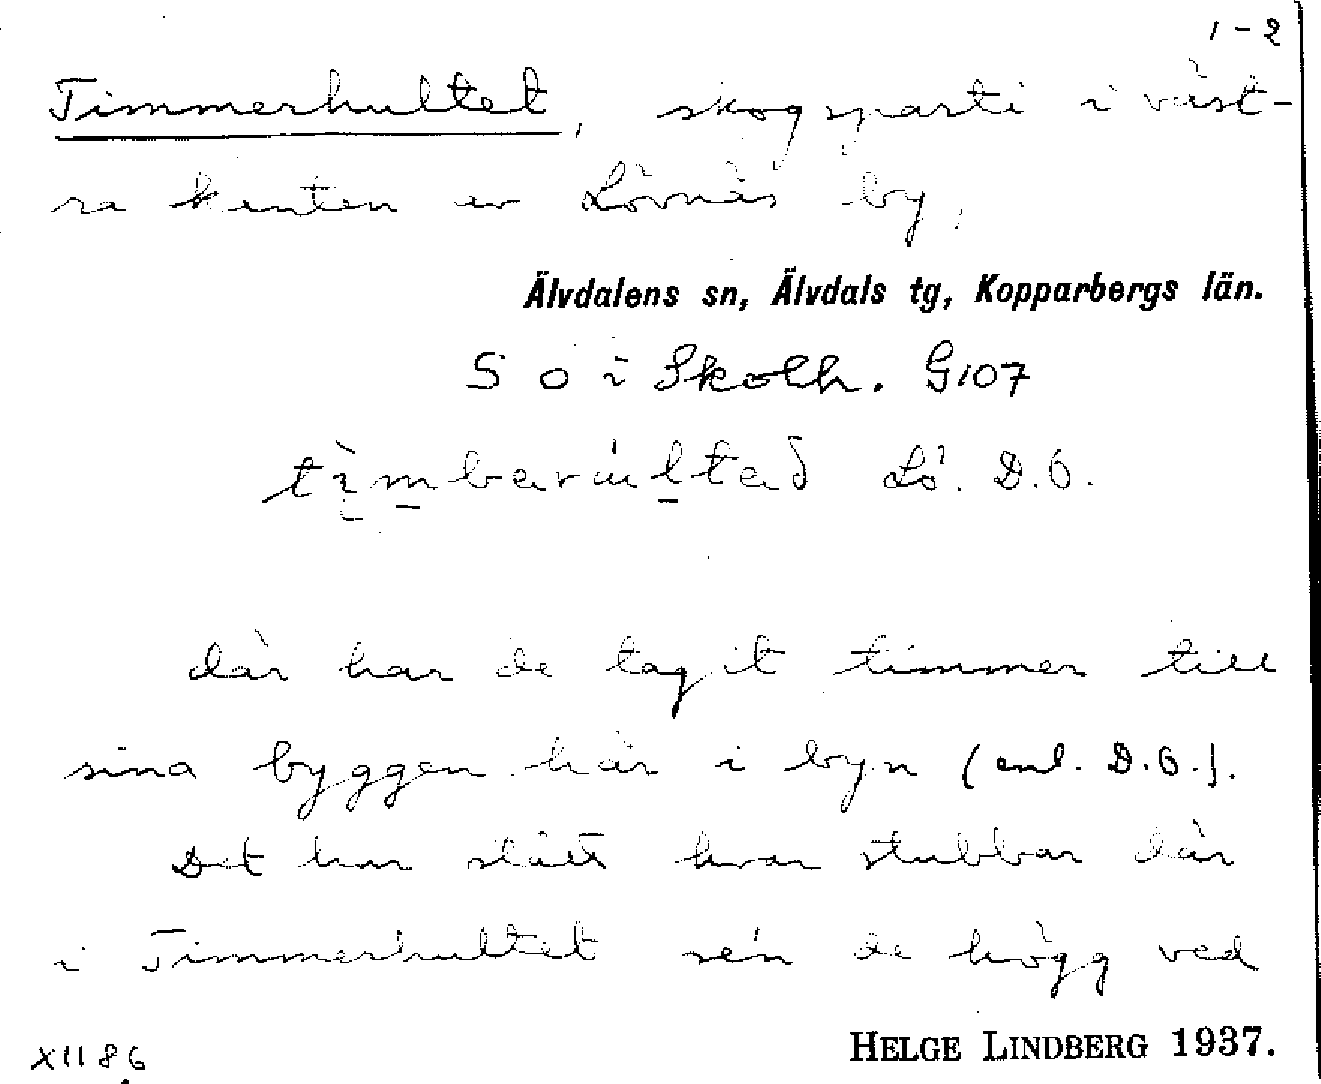 1-2
Timmerhultet, skogsparti i väst-
ra kanten av Lövnäs by,
Älvdalens sn, Älvdals tg, Kopparbergs län.
S o i Skolh. G107
Lö. D.O.
där har de tagit timmer till
sina byggen här i byn (enl. D.O.).
Det har stått kvar stubbar där
i Timmerhultet se'n de högg ved
XII 86
HELGE LINDBERG 1937.